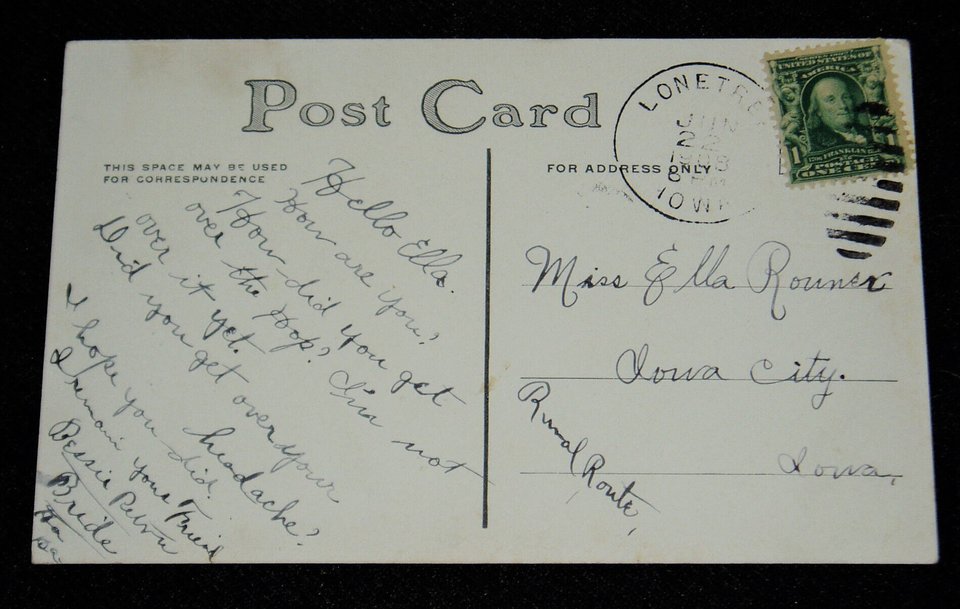 Post Card
THIS SPACE MAY BE USED
FOR CORRESPONDENCE
FOR ADDRESS ONLY
LONETREE
JUN
22
1908
IOWA
UNITED STATES OF
AMERICA
1 1
FRANKLIN
POSTAGE
ONE CENT
Hello Ella.
How are you?
How did you get
over the Hop? I'm not
over it yet.
Did you get over your
headache?
I hope you did.
I remain your Friend
Bessie
Bride
Ha
Miss Ella Rouner
Iowa City.
Rural Route,
Iowa,